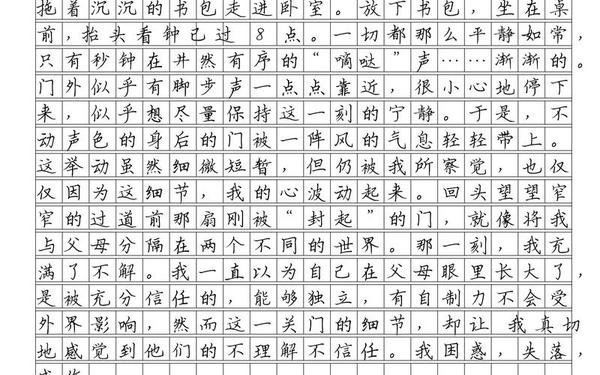 拖着沉沉的书包走进卧室。放下书包，坐在桌
前，抬头看钟已过8点。一切都那么平静如常，
只有秒钟在井然有序的“嘀哒”声……渐渐的。
门外似乎有脚步声一点点靠近，很小心地停下
来，似乎想尽量保持这一刻的宁静。于是，不
动声色的身后的门被一阵风的气息轻轻带上。
这举动虽然细微短暂，但仍被我所察觉，也仅
仅因为这细节，我的心波动起来。回头望望窄
窄的过道前那扇刚被“封起”的门，就像将我
与父母分隔在两个不同的世界。那一刻，我充
满了不解。我一直以为自己在父母眼里长大了，
是被充分信任的，能够独立，有自制力不会受
外界影响，然而这一关门的细节，却让 我真切
地感觉到他们的不理解不信任。我困惑，失落，